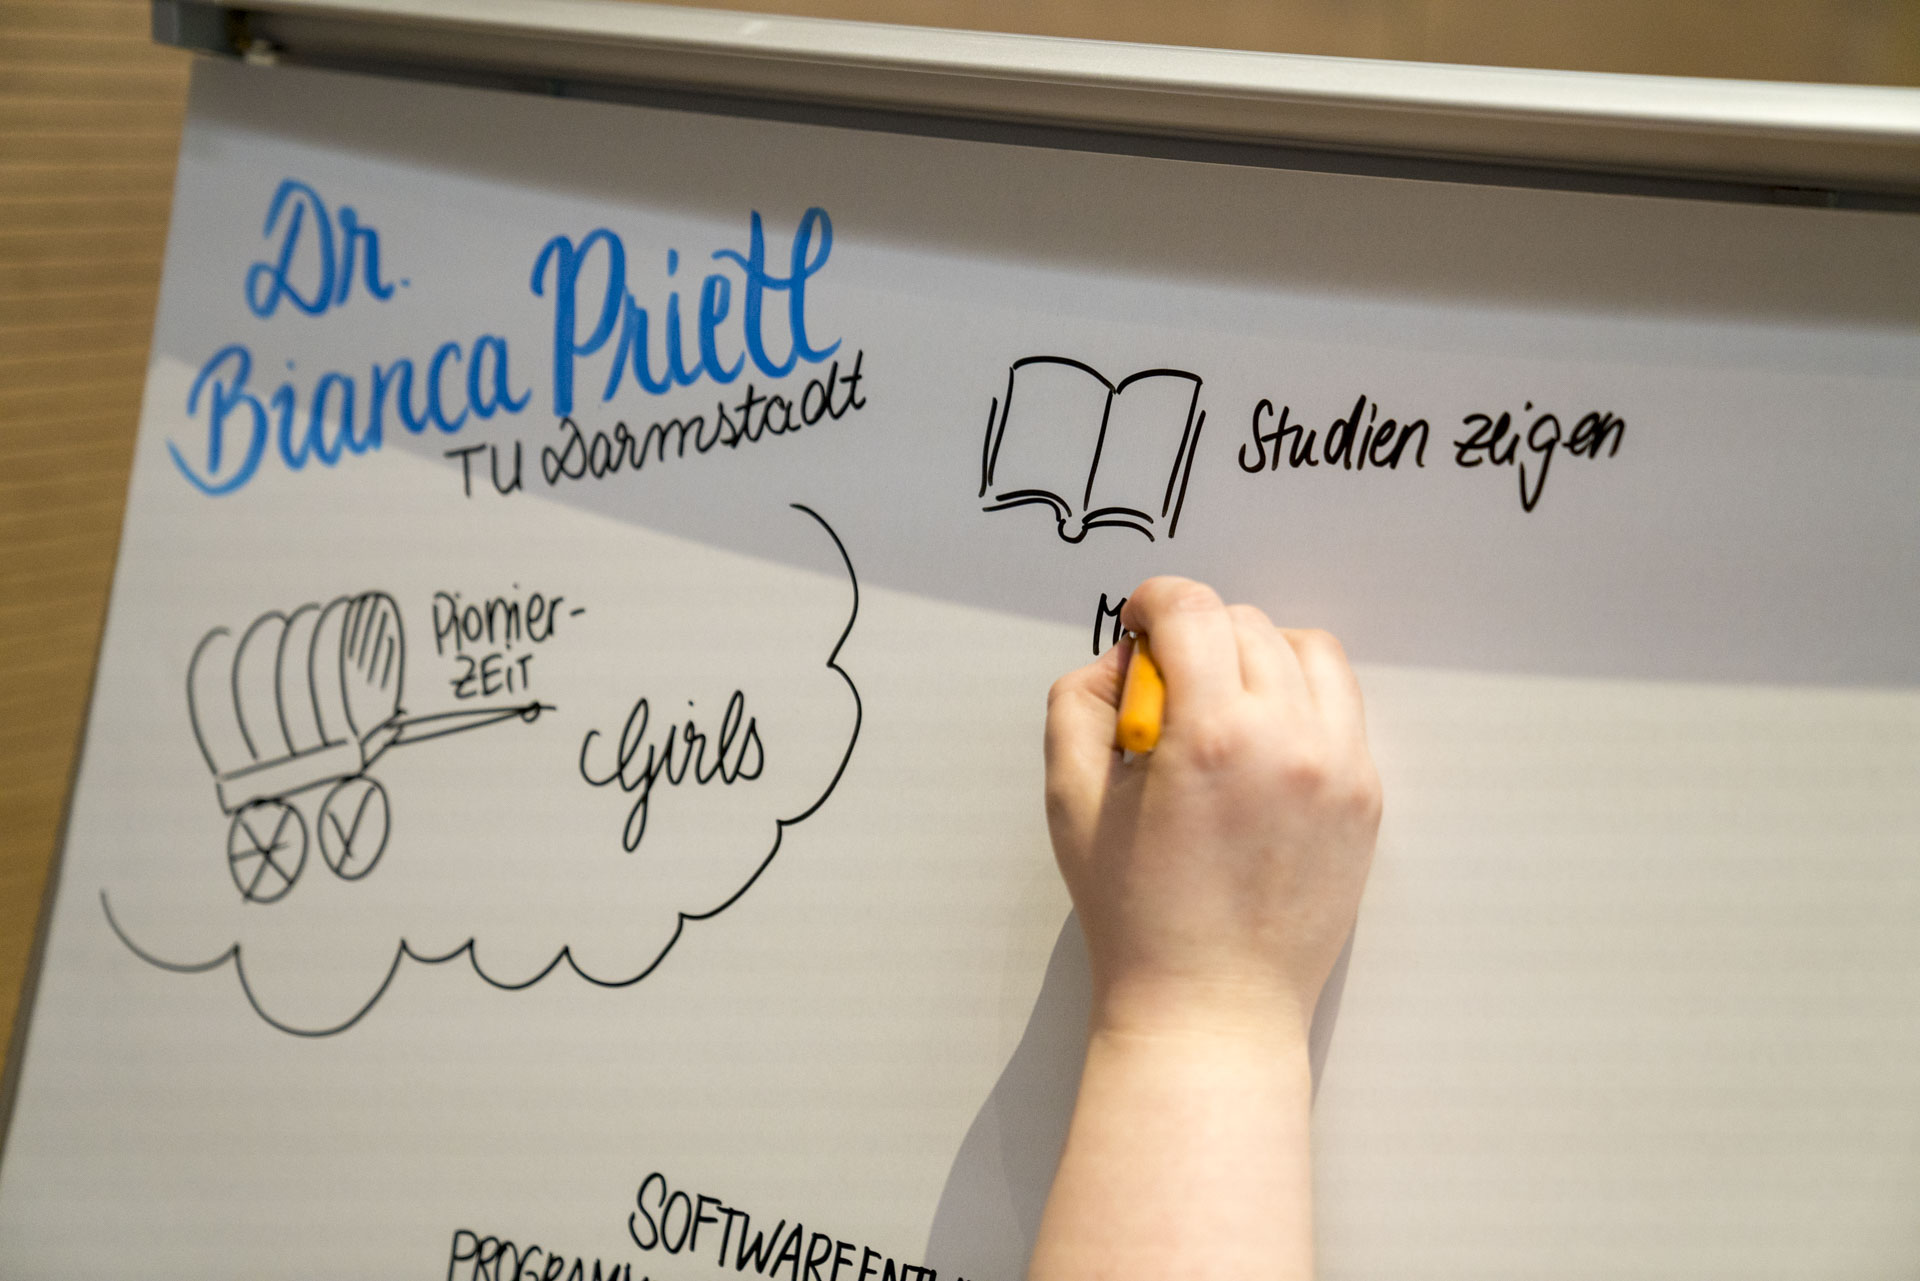 Dr.
Bianca Prietl
TU Darmstadt
Studien zeigen
Pionier-
ZEIT
Girls
M
SOFTWAREENT
PROGRAMM